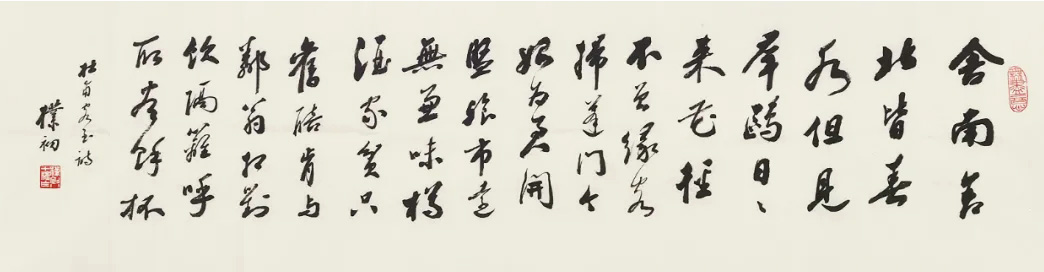 舍南舍
北皆春
水但見
羣鷗日〻
來花徑
不曾緣客
掃蓬門今
始為君開
盤飧市遠
無兼味樽
酒家貧只
舊醅肯與
鄰翁相對
飲隔籬呼
取盡餘杯
杜甫客至詩
樸初